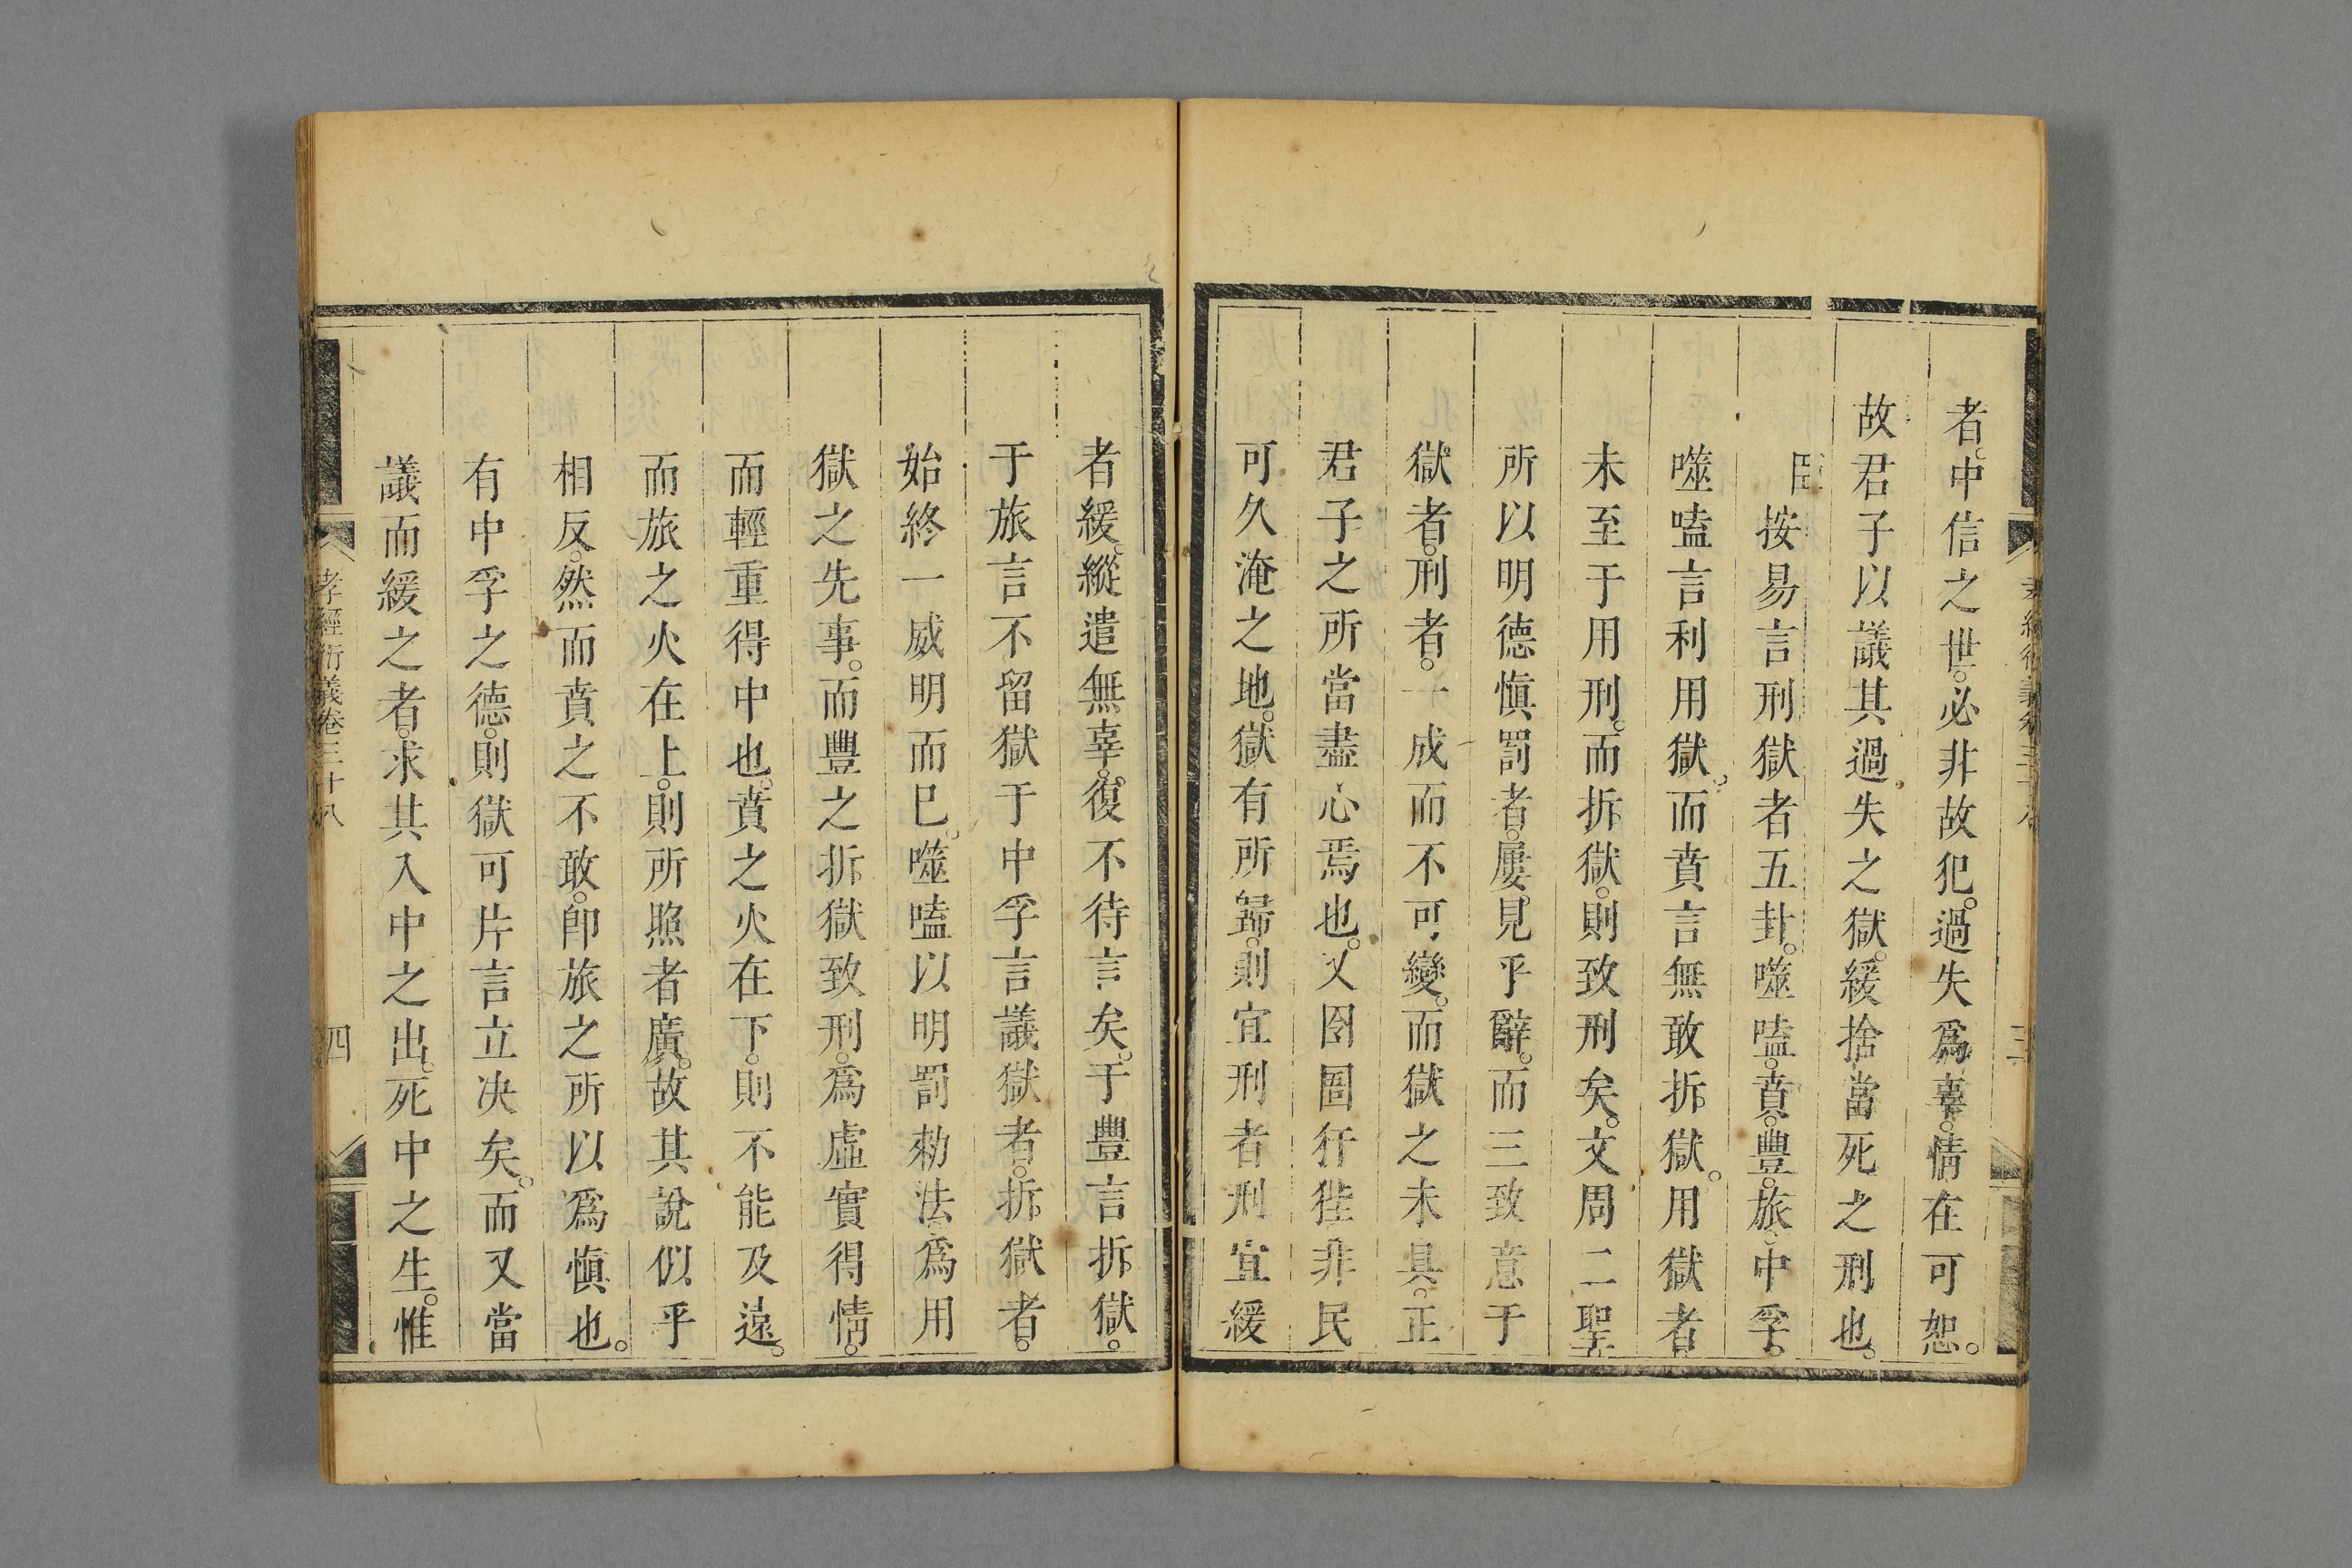 者。中信之世。必非故犯。過失爲辜。情在可恕。
故君子以議其過失之獄。緩捨當死之刑也。
臣按易言刑獄者五卦。噬嗑。賁。豐。旅。中孚。
噬嗑言利用獄。而賁言無敢折獄。用獄者
未至于用刑。而拆獄。則致刑矣。文周二聖
所以明德慎罰者。屢見乎辭。而三致意于
獄者。刑者。一成而不可變。而獄之未具。正
君子之所當盡心焉也。乂囹圄犴狴非民
可久淹之地。獄有所歸。則宜刑者刑宜緩
孝經衍義卷三十八
三
者緩。縱遣無辜。復不待言矣。于豐言拆獄。
于旅言不留獄于中孚言議獄者。拆獄者。
始終一威明而巳。噬嗑以明罰勑法。爲用
獄之先事。而豐之拆獄致刑。爲虛實得情。
而輕重得中也。賁之火在下。則不能及遠。
而旅之火在上。則所照者廣。故其說似乎
相反。然而賁之不敢。卽旅之所以爲慎也。
有中孚之德。則獄可片言立决矣。而又當
議而緩之者。求其入中之出。死中之生。惟
孝經衍義卷三十八
四